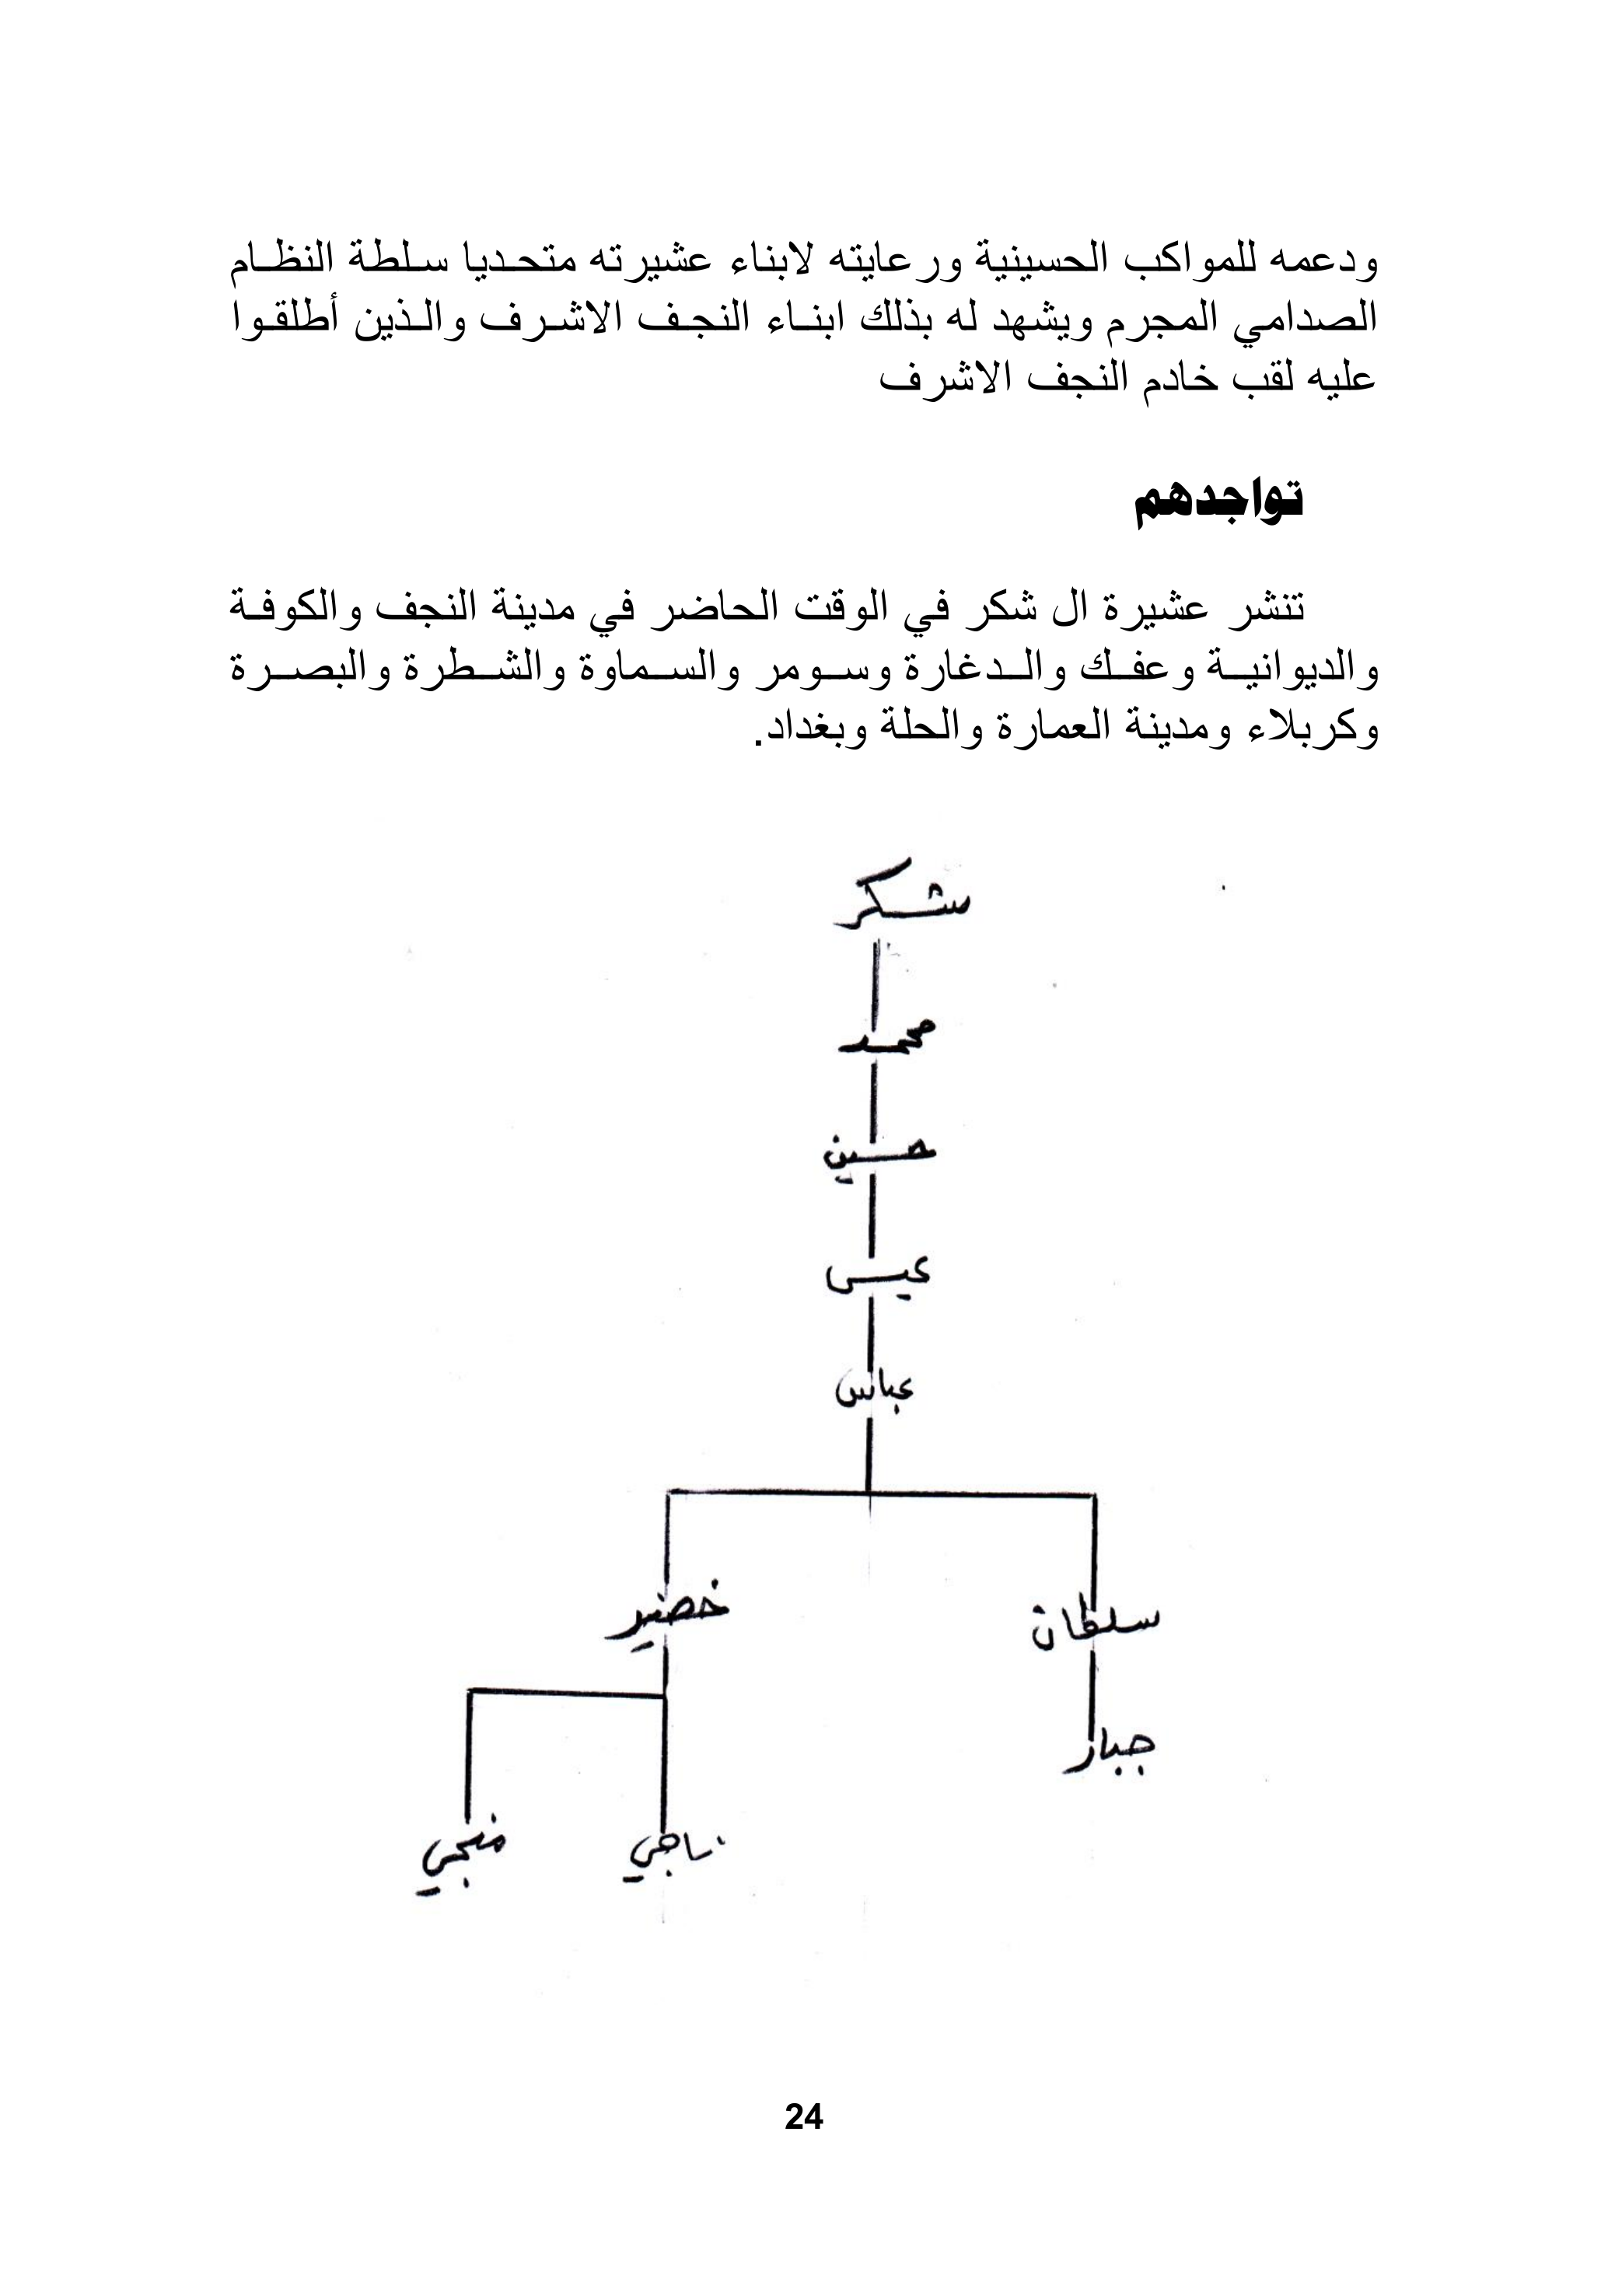 ودعمه للمواكب الحسينية ورعايته لابناء عشيرته متحديا سلطة النظام
الصدامي المجرم ويشهد له بذلك ابناء النجف الاشرف والذين أطلقوا
عليه لقب خادم النجف الاشرف
تواجدهم
تنشر عشيرة ال شكر في الوقت الحاضر في مدينة النجف والكوفة
والديوانية وعفك والدغارة وسومر والسماوة والشطرة والبصرة
وكربلاء ومدينة العمارة والحلة وبغداد.
شكر
محمد
حسين
عيسى
عباس
سلطان
خضير
جبار
ناجي
منجي
24